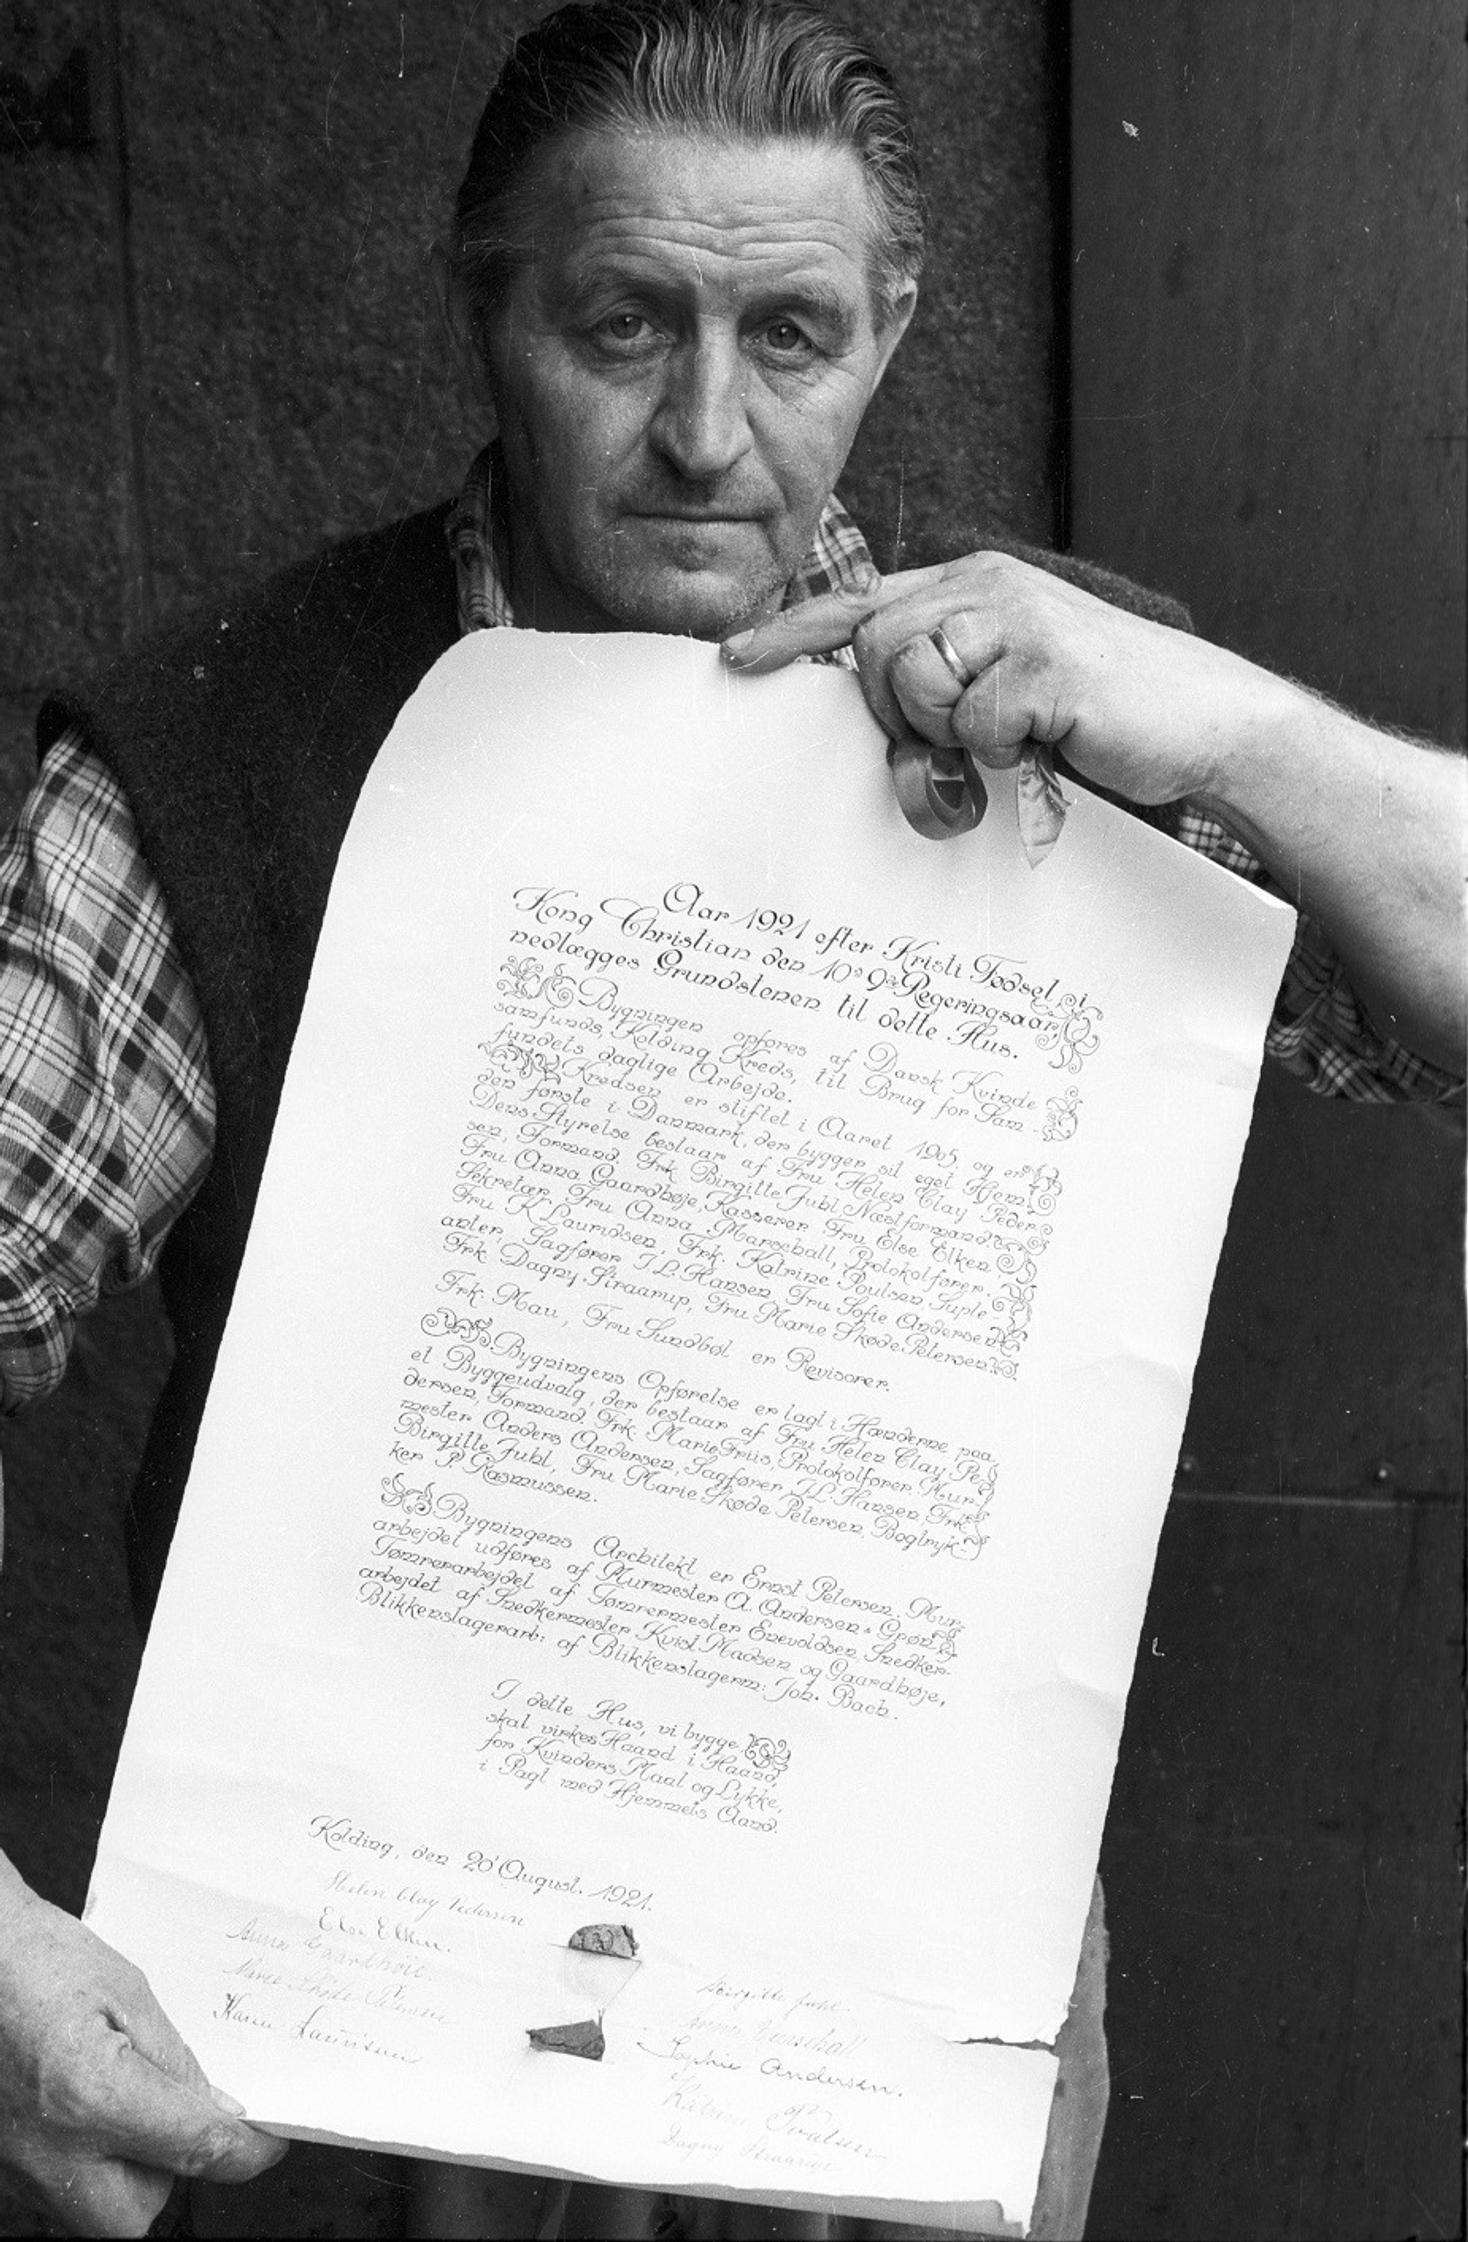 Aar 1921 efter Kristi Fødsel, i
Kong Christian den 10s 9de Regeringsaar,
nedlægges Grundstenen til dette Hus.
Bygningen opføres af Dansk Kvinde
samfunds, Kolding Kreds, til Brug for Sam-
fundets daglige Arbejde.
Kredsen er stiftet i Aaret 1905, og er
den første i Danmark, der bygger sit eget Hjem.
Dens Styrelse bestaar af Fru Helen Clay Peder
sen, Formand. Frk. Birgitte Juhl, Næstformand.
Fru Anna Gaardhøje, Kasserer. Fru Else Elken,
Sekretær, Fru Anna Marschall, Protokolfører.
Fru K. Lauridsen, Frk. Katrine Poulsen, Suple-
anter, Sagfører J.L. Hansen, Fru Sofie Andersen
Frk. Dagny Straarup, Fru Marie Skøde Petersen.
Frk. Mau, Fru Sundbøl er Revisorer.
Bygningens Opførelse er lagt i Hænderne paa
et Byggeudvalg, der bestaar af Fru Helen Clay Pe
dersen, Formand. Frk. Marie Friis, Protokolfører. Mur-
mester Anders Andersen, Sagfører J.L. Hansen, Frk.
Birgitte Juhl, Fru Marie Skøde Petersen, Bogtryk-
ker P. Rasmussen.
Bygningens Architekt er Ernst Petersen. Mur-
arbejdet udføres af Murmester A. Andersen & Grøn
Tømrerarbejdet af Tømrermester Enevoldsen, Snedker-
arbejdet af Snedkermester Kvist Madsen og Gaardhøje,
Blikkenslagerarb: af Blikkenslagerm: Joh. Bach.
I dette Hus, vi bygge
skal virkes Haand i Haand,
for Kvinders Maal og Lykke,
i Pagt med Hjemmets Aand.
Kolding, den 20' August. 1921.
Helen Clay Pedersen
Else Elken.
Anna Gaardhøie.
Marie Skøde Petersen
Karen Lauridsen
Birgitte Juhl
Anna Marschall
Sophie Andersen.
Katrine Poulsen
Dagny Straarup